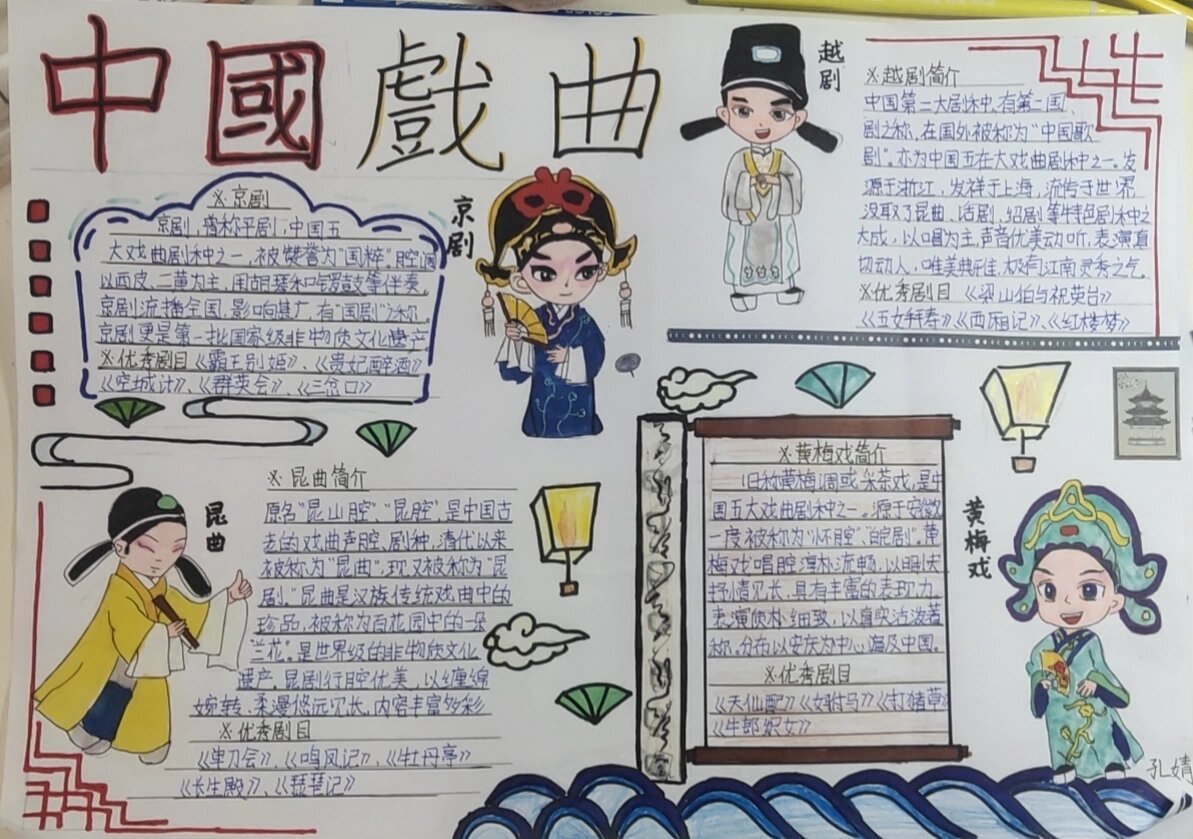 中國戲曲
※京剧
京剧，曾称平剧，中国五
大戏曲剧种之一，被赞誉为"国粹"。腔调
以西皮、二黄为主，用胡琴和锣鼓等伴奏，
京剧流播全国，影响甚广，有"国剧"之称。
京剧更是第一批国家级非物质文化遗产
※优秀剧目《霸王别姬》、《贵妃醉酒》
《空城计》、《群英会》、《三岔口》
京剧
越剧
※越剧简介
中国第二大剧种，有第二国
剧之称，在国外被称为"中国歌
剧"。亦为中国五在大戏曲剧种之一。发
源于浙江，发祥于上海，流传于世界
没取了昆曲、话剧、绍剧等特色剧种之
大成，以唱为主，声音优美动听，表演真
切动人，唯美典雅，极有江南灵秀之气。
※优秀剧目《梁山伯与祝英台》
《五女拜寿》《西厢记》、《红楼梦》
昆曲
※昆曲简介
原名"昆山腔"、"昆腔"，是中国古
老的戏曲声腔、剧种，清代以来
被称为"昆曲"，现又被称为"昆
剧。"昆曲是汉族传统戏曲中的
珍品，被称为百花园中的一朵
"兰花"。是世界级的非物质文化
遗产。昆剧行腔优美，以缠绵
婉转、柔漫悠远见长。内容丰富多彩
※优秀剧目
《单刀会》、《鸣凤记》、《牡丹亭》
《长生殿》、《琵琶记》
※黄梅戏简介
旧称黄梅调或采茶戏，是中
国五大戏曲剧种之一。源于安徽
一度被称为"怀腔"、"皖剧"。黄
梅戏唱腔淳朴流畅，以明快
抒情见长，具有丰富的表现力
表演质朴细致，以真实活泼著
称。分布以安庆为中心，遍及中国。
※优秀剧目
《天仙配》《女驸马》《打猪草》
《牛郎织女》
黄梅戏
孔婧